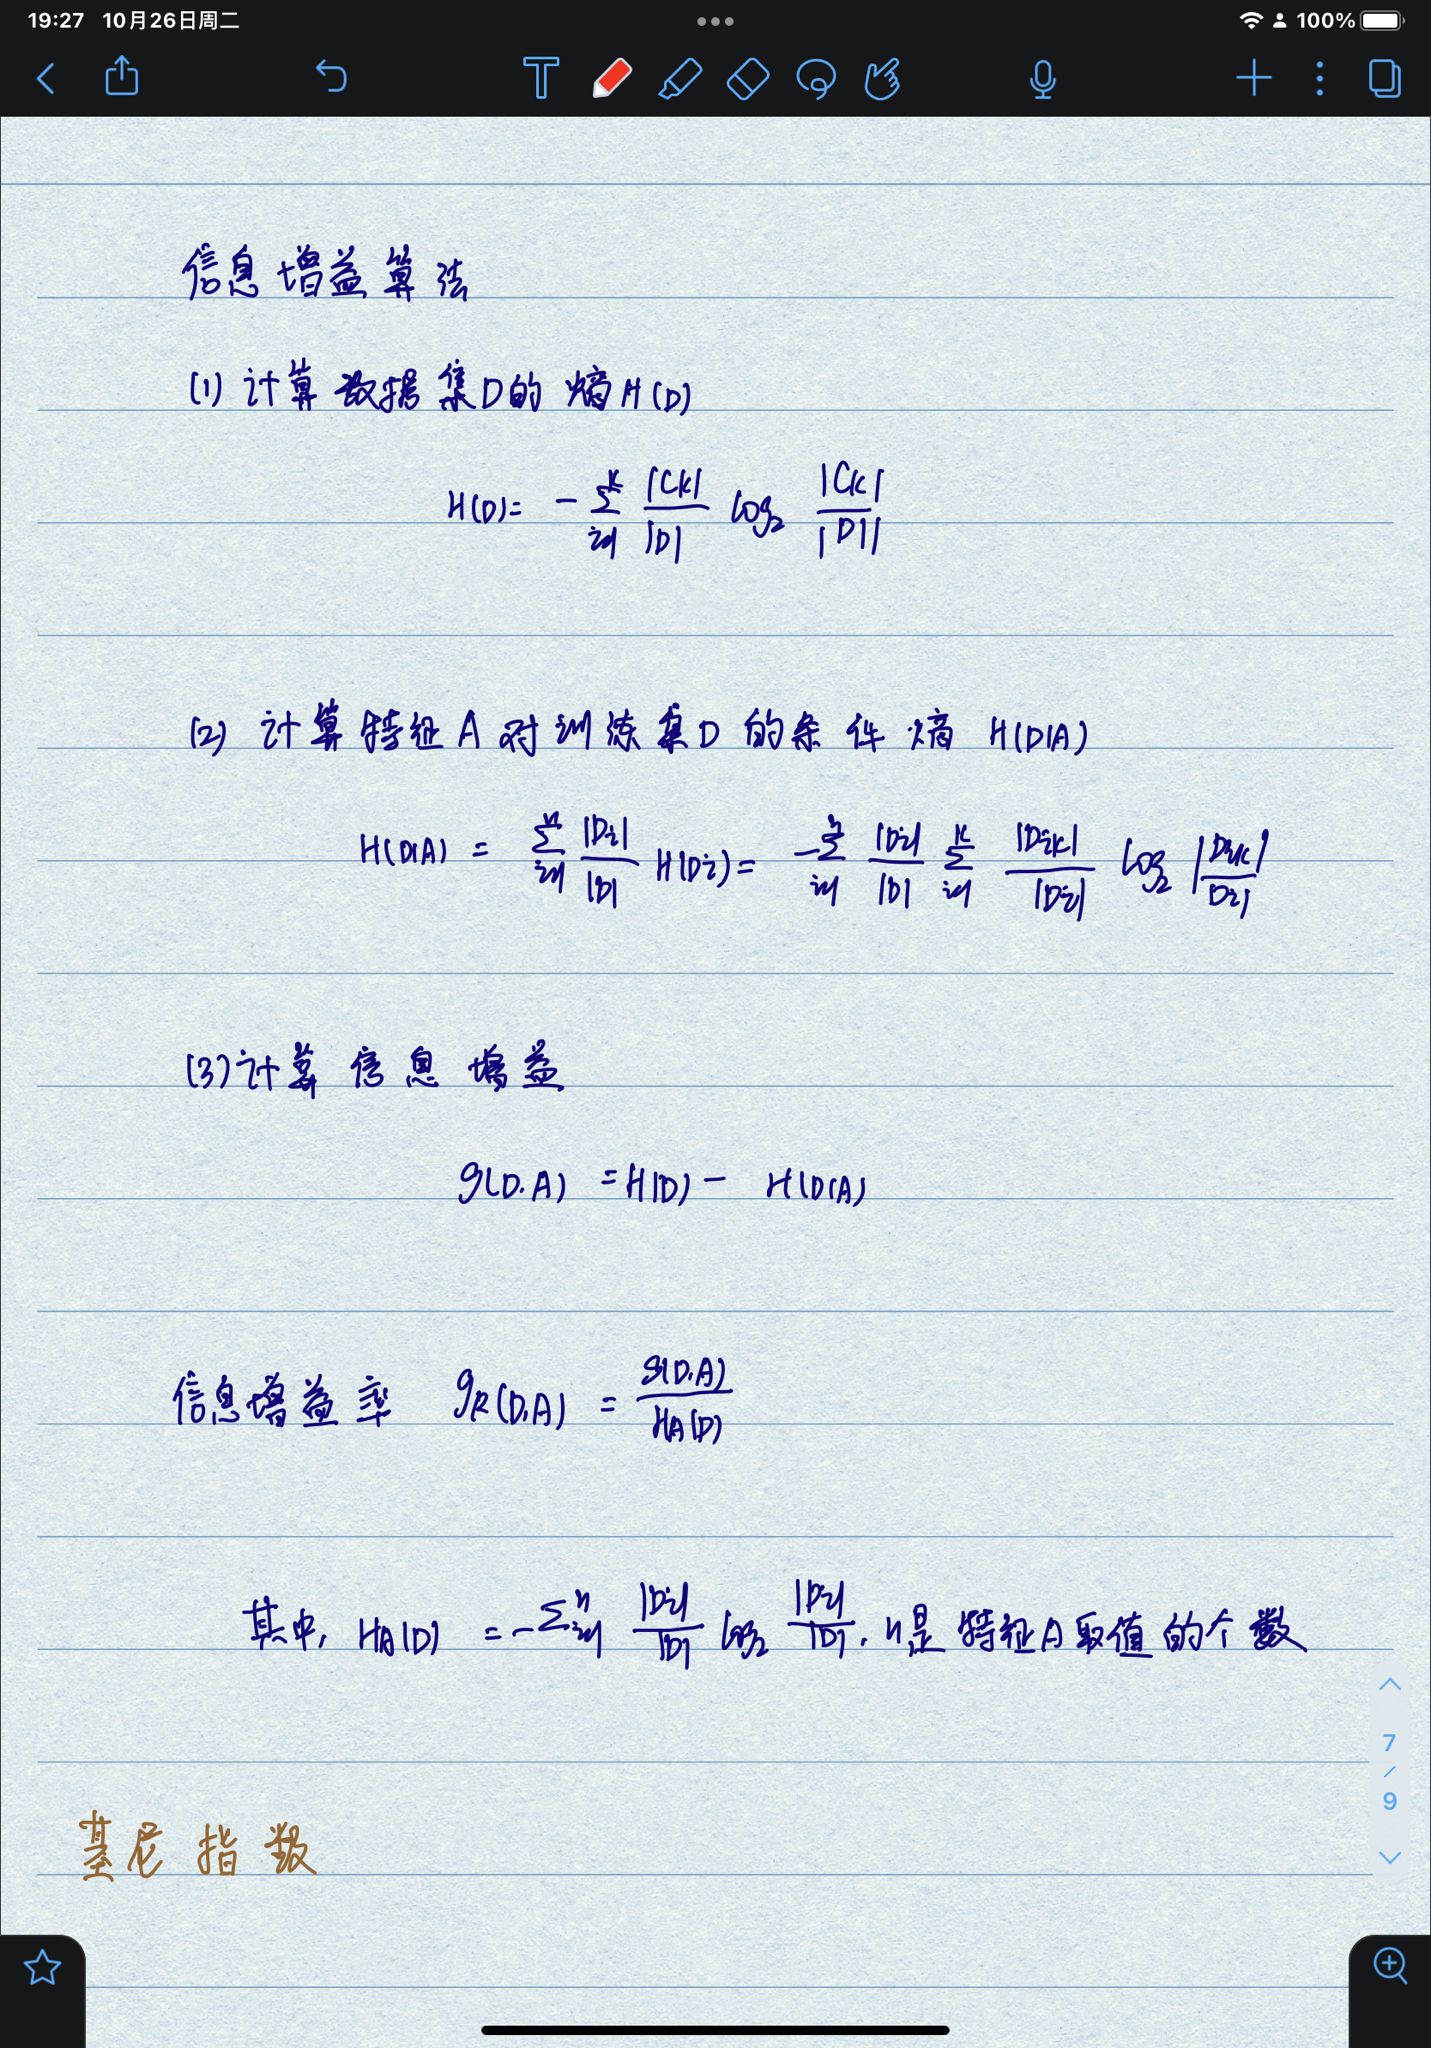 19:27 10月26日周二 100%
信息增益算法
(1) 计算数据集D的熵H(D)
H(D) = -∑_{i=1}^{K} |Ck|/|D| log₂ |Ck|/|D|
(2) 计算特征A对训练集D的条件熵 H(D|A)
H(D|A) = ∑_{i=1}^{n} |Di|/|D| H(Di) = -∑_{i=1}^{n} |Di|/|D| ∑_{i=1}^{K} |Dik|/|Di| log₂ |Dik|/|Di|
(3) 计算信息增益
g(D.A) = H(D) - H(D|A)
信息增益率 g_R(D,A) = g(D.A)/H_A(D)
其中, H_A(D) = -∑_{i=1}^{n} |Di|/|D| log₂ |Di|/|D|. n是特征A取值的个数
7
/
9
基尼指数